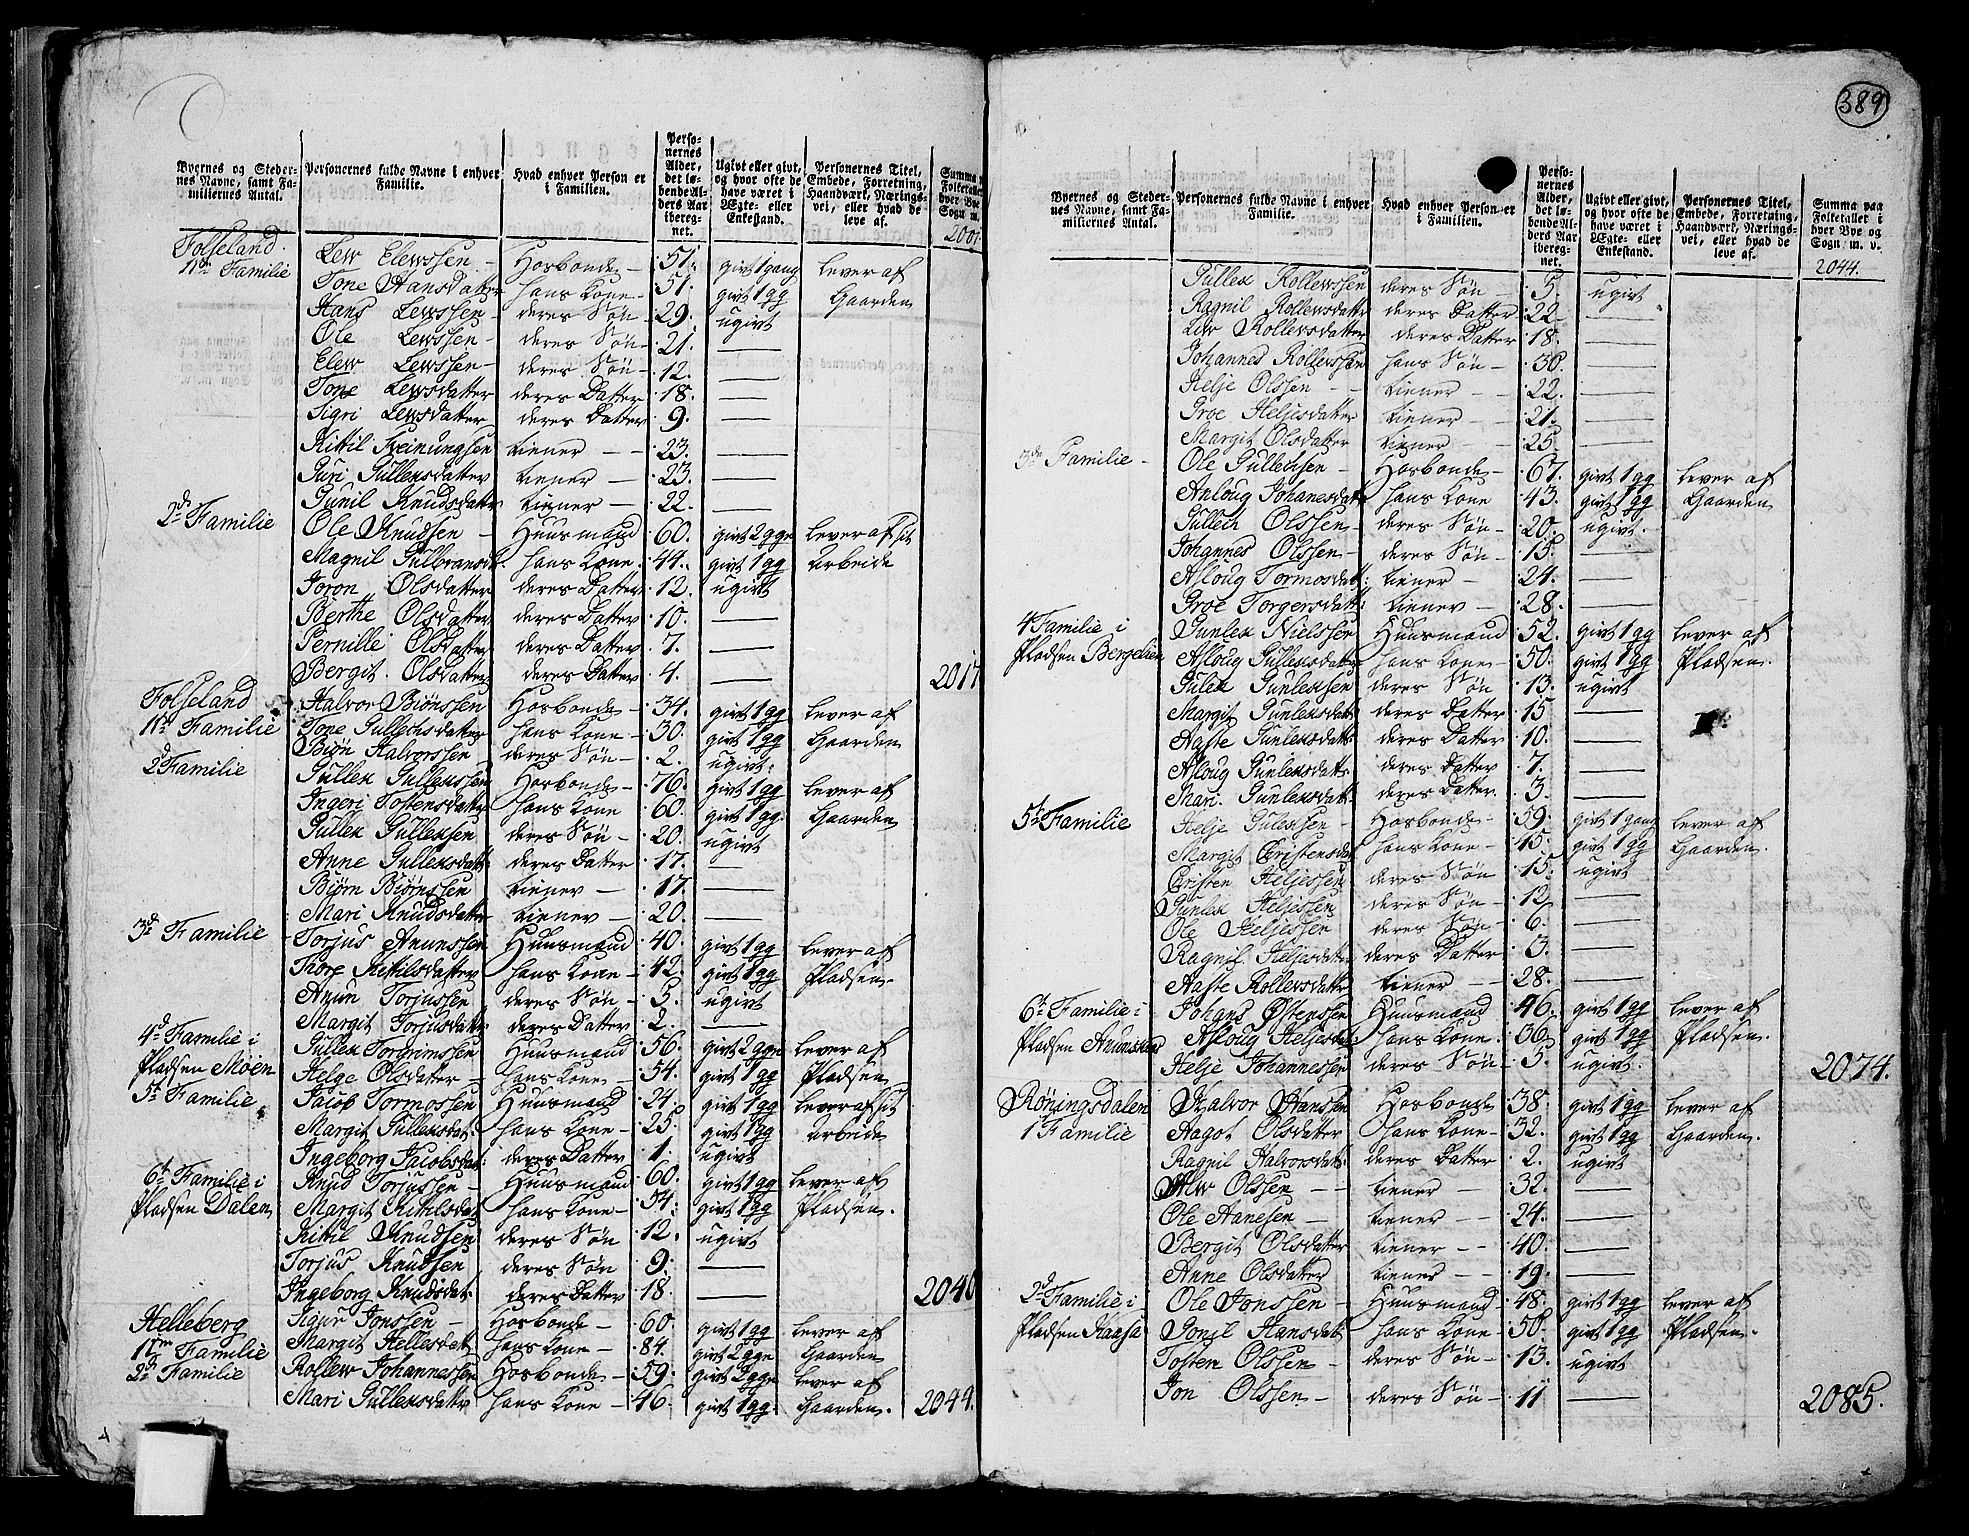 389
Byernes og Steder-nes Navne, samt Fa-miliernes Antal. Personernes fulde Navne i enhver Familie. Hvad enhver Person er i Familien. Perso-nernes Alder, det lø-bende Al-ders Aar ibereg-net. Ugivt eller givt, og hvor ofte de have været i Ægte- eller Enkestand. Personernes Titel, Embede, Forretning, Haandværk, Nærings-vei, eller hvad de leve af. Summa Folketallet hver Bye Sogn m.
2001
Folseland.
1ste Familie Lew Elewssen - Hosbonde - 51. givt 1 gang lever af
Tone Hansdatter hans Kone - 51. givt 1 gg Gaarden
Hans Lewssen - deres Søn - 29. ugivt
Ole Lewssen - deres Søn - 21. —
Elew Lewssen - deres Søn - 12. —
Tone Lewsdatter deres Datter 18. —
Sigri Lewsdatter deres Datter 9. —
Kittil Tveinungsen tiener - - 23. —
Guri Gullexsdatter tiener - 23. —
Gunil Knudsdatter tiener - 22. —
2d Familie Ole Knudsen - Huusmand 60. givt 2 ggr lever af sit
Magnil Gulbransd. hans Kone. 44. givt 1 gg arbeide
Joron Olsdatter deres Datter 12. ugivt
Berthe Olsdatter deres Datter 10. —
Pernille Olsdatter deres Datter 7. —
Bergit. Olsdatter deres Datter 4. — 2017
Folseland Halvor Biønssen Hosbonde - 34. givt 1 gg lever af
1ste Familie Tone Gullechsdatter hans Kone - 30. givt 1 gg Gaarden
Biøn Halvorssen deres Søn - 2. ugivt.
2 Familie Gullex Gullexssen Hosbonde - 76. givt 1 gg lever af
Ingeri Tostensdatter hans Kone 60. givt 1 gg. Gaarden
Gullex Gullexsen deres Søn - 20. ugivt
Anne Gullexsdatt. deres Datter 17. —
Biørn Biørnssen tiener - 17. —
Mari Knudsdatter tiener - 20. —
3d Familie - Torjus Anunssen Huusmand 40. givt 1 gg lever af
Thore Kittilsdatter hans Kone - 42. givt 1 gg Pladsen.
Anun Torjussen deres Søn - 5. ugivt
Margit Torjusdatt. deres Datter 2. —
4d Familie i Gullex Torgrimssen Huusmand 56. givt 2 ggr lever af
Pladsen Moen Helge Olsdatter - hans Kone - 54. givt 1 gg Pladsen
5t Familie. Jacob Tormossen Huusmand 24. givt 1 gg lever af sit
Margit Gullexsdat. hans Kone - 25. givt 1 gg arbeide
Ingeborg Jacobsdat. deres Datter 1. ugivt
6t Familie i Knud Torjussen - Huusmand 60. givt 1 gg lever af
Pladsen Dalen Margit Kittilsdat. hans Kone - 54. givt 1 gg Pladsen.
Kittil Knudsen deres Søn 12. ugivt
Torjus Knudsen deres Søn 9. —
Ingeborg Knudsdat. deres Datter 18. — 2040
Helleberg Sigur Jonssen - Hosbonde - 60. givt 1 gg lever af
1ste Familie Margit Hellesdat. hans Kone - 84. givt 2 ggr Gaarden
2d Familie Rollew Johannessen Hosbonde - 59. givt 2 ggr lever af
Mari Gullexsdatter hans Kone - 46. givt 1 gg. Gaarden. 2044.
Byernes og Steder-nes Navne, samt Fa-miliernes Antal. Personernes fulde Navne i enhver Familie. Hvad enhver Person er i Familien. Perso-nernes Alder, det lø-bende Al-ders Aar ibereg-net. Ugivt eller givt, og hvor ofte de have været i Ægte- eller Enkestand. Personernes Titel, Embede, Forretning, Haandværk, Nærings-vei, eller hvad de leve af. Summa paa Folketallet i hver Bye og Sogn m. v.
2044.
Gullex Rollewssen deres Søn - 5. ugivt
Ragnil Rollewsdatter deres Datter 22. —
Liv Rollewsdatter deres Datter 18. —
Johannes Rollewssen hans Søn - 30. —
Helje Olssen - - tiener - - 22. —
Groe Heljesdatter tiener - 21. —
Margit Olsdatter tiener - - 25. —
3de Familie - Ole Gullechsen - Hosbonde - 67. givt 1 gg lever af
Anloug Johanesdatt. hans Kone 43. givt 1 gg Gaarden
Gullech Olssen - deres Søn - 20. ugivt.
Johannes Olssen - deres Søn - 15. —
Asloug Tormosdatt. tiener - 24. —
Groe Torgersdatt. tiener - 28. —
4 Familie i Gunlex Nielssen Huusmand 52. givt 1 gg lever af
Pladsen Bergelien Asloug Gullexsdatter hans Kone - 50. givt 1 gg Pladsen.
Gulex Gunlexsen deres Søn 13. ugivt
Margit Gunlexsdatt. deres Datter 15 —
Aaste Gunlexsdatt. deres Datter 10. —
Asloug Gunlexsdatt. deres Datter 7. —
Mari. Gunlexsdatt. deres Datter. 3. —
5t Familie Helje Gulexssen - Hosbonde - 59. givt 1 gang lever af
Margit Cristensdat. hans Kone - 45. givt 1 gg Gaarden.
Cristen Heljessen deres Søn 15. ugivt
Gunlex Heljessen deres Søn - 12. —
Ole Heljessen deres Søn - 6. —
Ragnil Heljesdatter deres Datter 3. —
Aaste Rollewsdatter tiener - - 28. —
6t Familie i Johans Østenssen Huusmand 46. givt 1 gg lever af
Pladsen Asloug Heljesdat. hans Kone. 36. givt 1 gg Pladsen.
Helje Johannessen deres Søn - 5. ugivt. 2074.
Røningsdalen Halvor Hanssen Hosbonde 38. givt 1 gg lever af
1 Familie Aagot Olsdatter hans Kone - 32. givt 1 gg Gaarden.
Ragnil Halvorsdatt. deres Datter 2. ugivt
Olssen - - tiener - - 32. —
Ole Hanesen - tiener - - 24. —
Bergit Olsdatter tiener - - 40. —
Anne Olsdatter tiener - - 19. —
2d Familie i Ole Jonssen - Huusmand 48. givt 1 gg lever af
Pladsen Haasa Gonil Hansdatt. hans Kone - 50. givt 1 gg Pladsen.
Tosten Olssen - deres Søn - 13. ugivt
Jon Olssen - deres Søn - 11 — 2085.